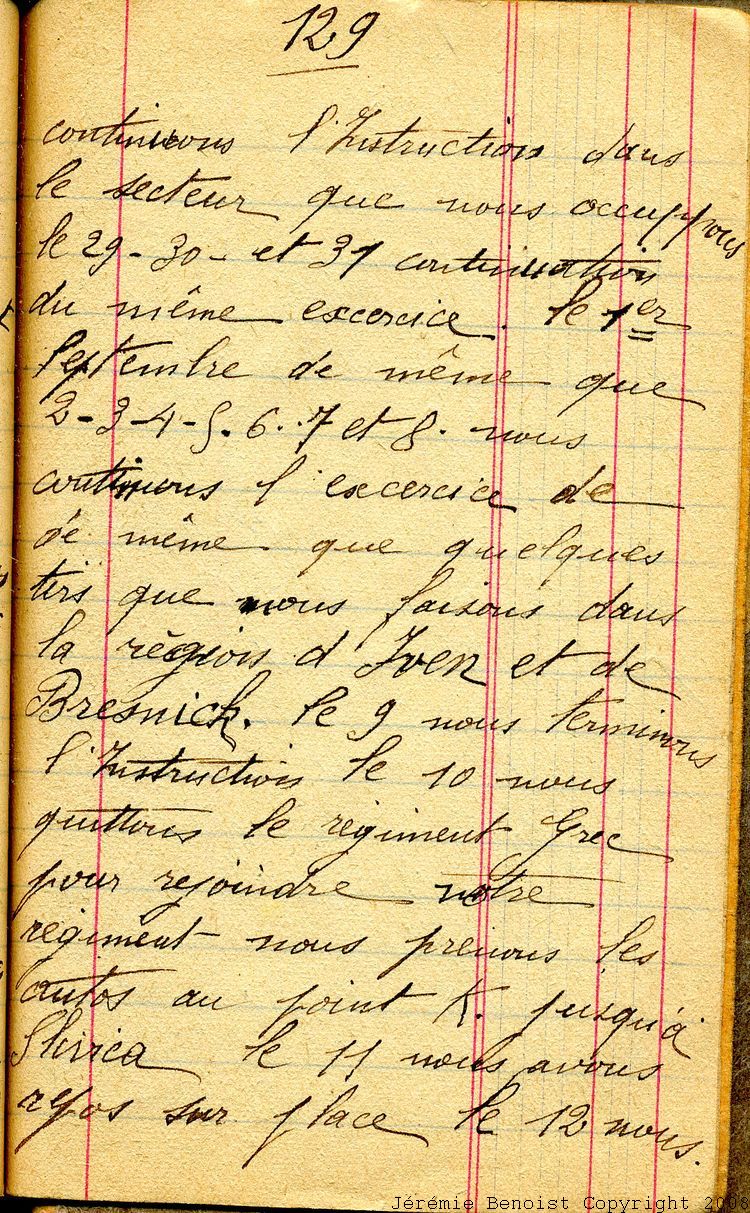 129
continuons l'Instruction dans
le secteur que nous occuppons
le 29 - 30 - et 31 continuation
du même excercice. le 1er
Septembre de même que
2 - 3 - 4 - 5. 6. 7 et 8. nous
continuons l'excercice de
de même que quelques
tirs que nous faisons dans
la région d'Iven et de
Bresnick. le 9 nous terminons
l'Instruction le 10 nous
quittons le régiment Grec
pour rejoindre notre
régiment nous prenons les
autos au point K. jusqu'à
Slivica le 11 nous avons
repos sur place le 12 nous.
Jérémie Benoist Copyright 2008